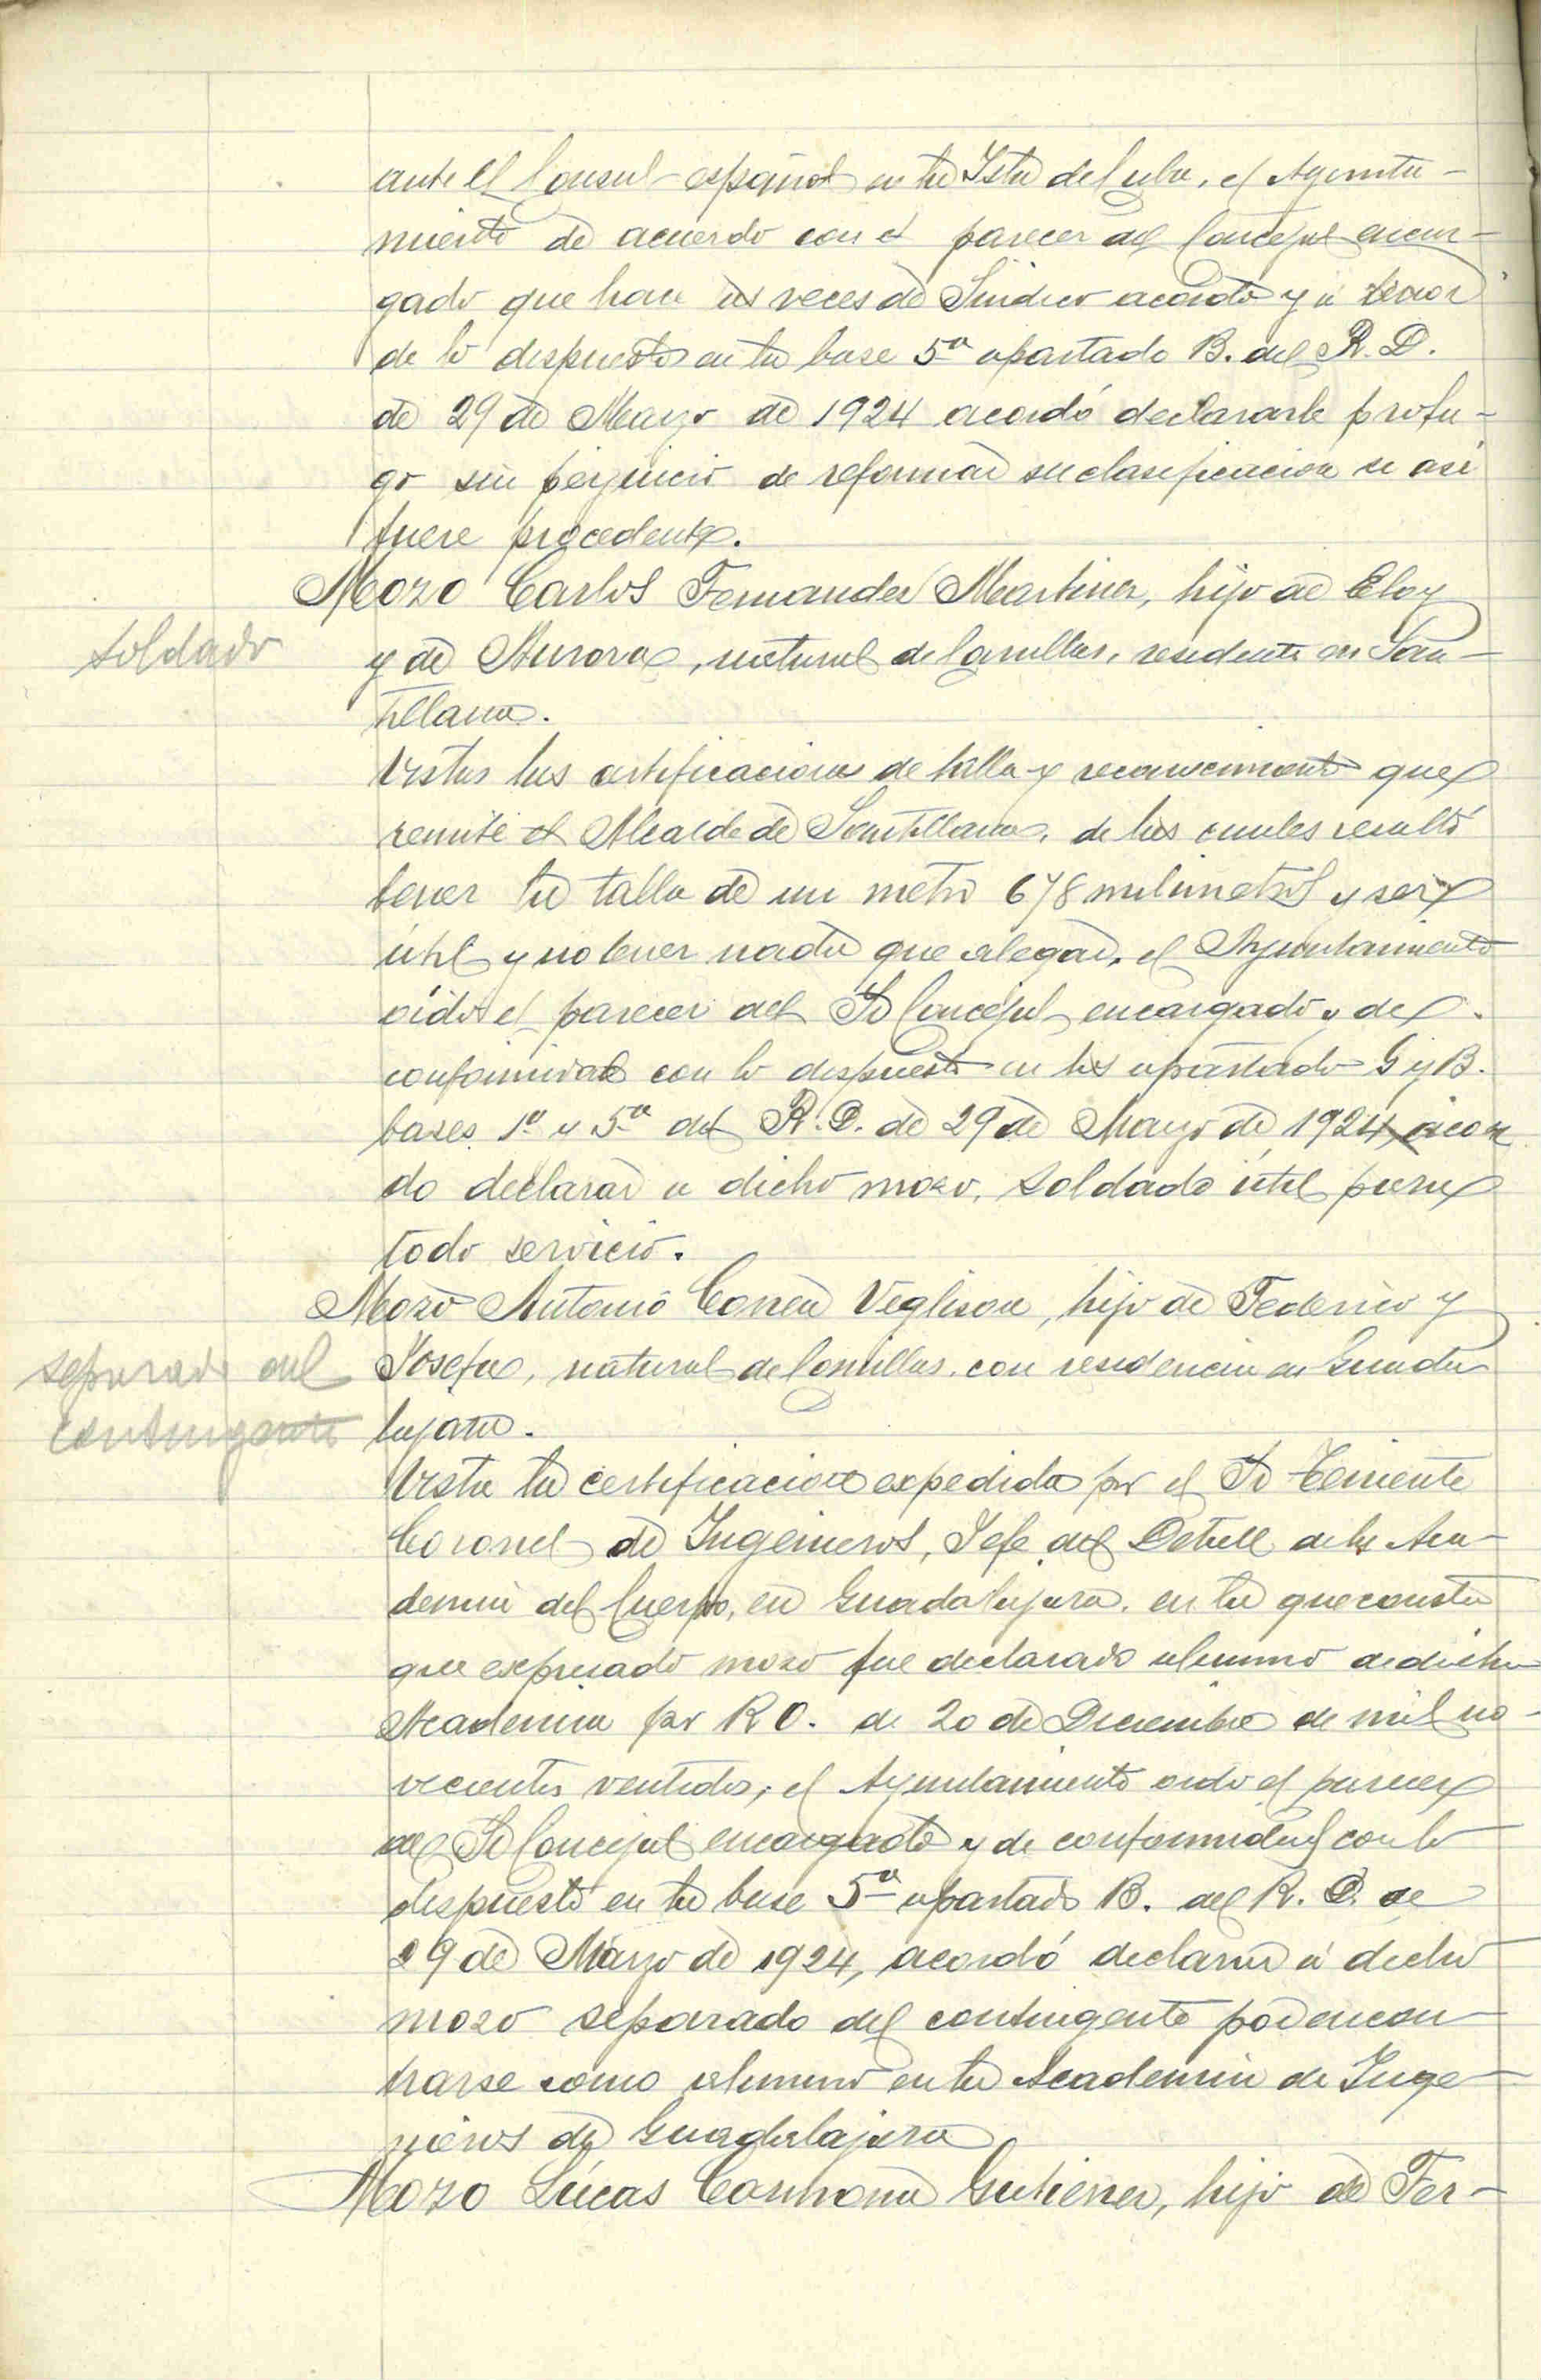 ante el Consul español en la Isla de Cuba, el Ayunta-
miento de acuerdo con el parecer del Concejal encar-
gado que hace las veces de Sindico acordo y á tenor
de lo dispuesto en la base 5ª apartado B. del R. D.
de 29 de Marzo de 1924 acordó declararle profu-
go sin perjuicio de reformar su clasificacion si asi
fuere procedente.
Mozo Carlos Fernandez Martinez, hijo de Eloy
soldado
y de Aurora, natural de Comillas, residente en San-
tillana.
Vistas las certificaciones de talla y reconocimiento que
remite el Alcalde de Santillana, de las cuales resultó
tener la talla de un metro 678 milimetros y ser
útil y no tener nada que alegar, el Ayuntamiento
oido el parecer del Sr Concejal encargado y de
conformidad con lo dispuesto en los apartado G y B.
bases 1ª y 5ª del R. D. de 29 de Marzo de 1924, acor
do declarar a dicho mozo, soldado útil para
todo servicio.
Mozo Antonio Correa Veglison, hijo de Federico y
separado del
Josefa, natural de Comillas, con residencia en Guada
contingente
lajara.
Vista la certificacion expedida por el Sr Teniente
Coronel de Ingenieros, Jefe del Detall de la Aca-
demia del Cuerpo, en Guadalajara, en la que consta
que expresado mozo fue declarado alumno de dicha
Academia por R O. de 20 de Diciembre de mil no-
vecientos ventidos, el Ayuntamiento oido el parecer
del Sr Concejal encargado y de conformidad con lo
dispuesto en la base 5ª apartado B. del R. D. de
29 de Marzo de 1924, acordó declarar á dicho
mozo separado del contingente por encon-
trarse como alumno en la Academia de Inge-
nieros de Guadalajara
Mozo Lúcas Gutierrez, hijo de Fer-